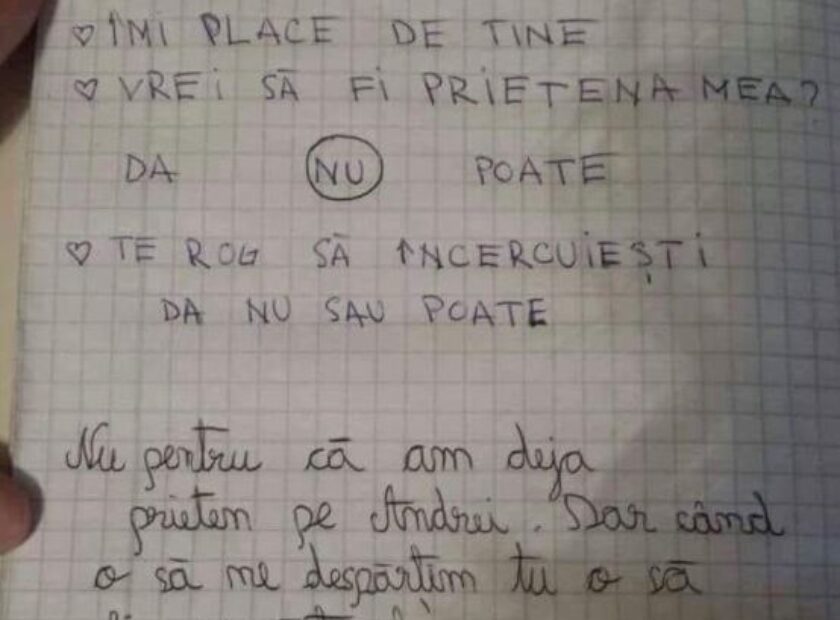 ♡ ÎMI PLACE DE TINE
♡ VREI SĂ FI PRIETENA MEA?
DA NU POATE
♡ TE ROG SĂ ÎNCERCUIEȘTI
DA NU SAU POATE
Nu pentru că am deja
prieten pe Andrei. Dar când
o să me despărtim tu o să